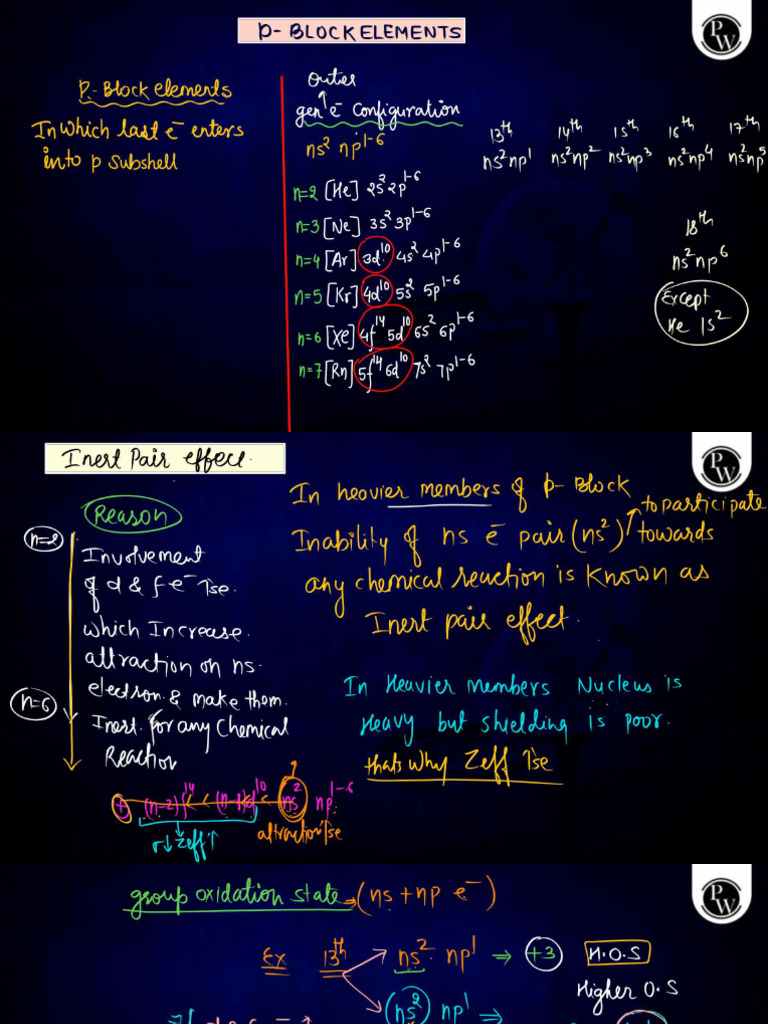 P-BLOCK ELEMENTS
PW
P-Block elements
In which last e⁻ enters
into p subshell
Outer
gen' e⁻ Configuration
ns² np¹⁻⁶
n=2 [He] 2s² 2p¹⁻⁶
n=3 [Ne] 3s² 3p¹⁻⁶
n=4 [Ar] 3d¹⁰ 4s² 4p¹⁻⁶
n=5 [Kr] 4d¹⁰ 5s² 5p¹⁻⁶
n=6 [Xe] 4f¹⁴ 5d¹⁰ 6s² 6p¹⁻⁶
n=7 [Rn] 5f¹⁴ 6d¹⁰ 7s² 7p¹⁻⁶
13th 14th 15th 16th 17th
ns²np¹ ns²np² ns²np³ ns²np⁴ ns²np⁵
18th
ns²np⁶
Except
He 1s²
Inert Pair effect
PW
Reason
n=2
Involvement
of d & f e⁻ ↑se.
which Increase
attraction on ns
electron & make them
Inert for any Chemical
Reaction
n=6
In heavier members of p-Block
Inability of ns e⁻ pair (ns²) to participate towards
any chemical reaction is known as
Inert pair effect.
In Heavier members Nucleus is
Heavy but shielding is poor.
that's why Zeff ↑se
+ (n-2)f¹⁴ (n-1)d¹⁰ ns² np¹⁻⁶
σ↓ Zeff↑
attraction ↑se
PW
group oxidation state → (ns + np e⁻)
Ex 13th ns² np¹ ⇒ +3 H.O.S
Higher O.S
(ns²) np¹ ⇒